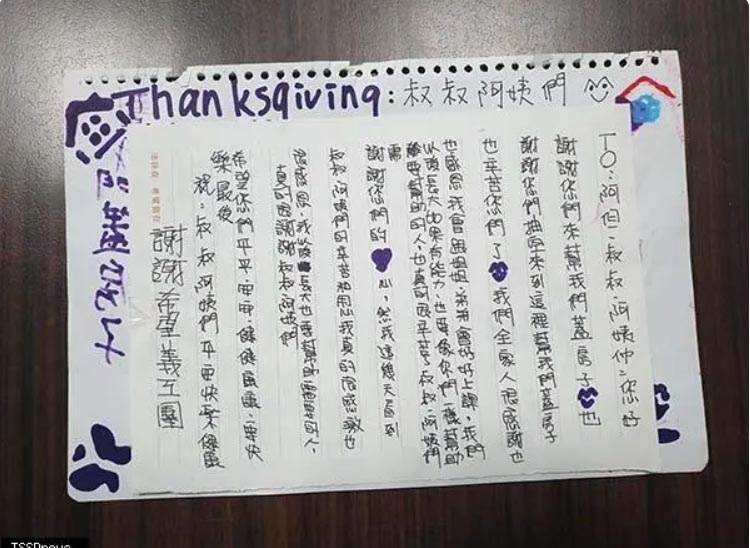 Thanksgiving:叔叔阿姨們
TO:阿伯、叔叔、阿姨仲二、您好
謝謝您們來幫我們蓋房子也
謝謝您們抽空來到這裡幫我們蓋房子
也辛苦您們了我們全家人很感謝也
也感恩我會跟姐姐、弟弟會好好上課,我們
以後長大如果有能力,也要像你們一樣幫助
需要幫助的人,也真的很辛苦叔叔、阿姨們
謝謝您們的心,然我這幾天看到
叔叔、阿姨們的辛苦和用心我真的感激也
我以後長大也要幫助需要的人,
真的謝謝叔叔阿姨們
希望你們平平安安,健健康康,快快
樂最後
祝:叔叔阿姨們平安快樂健康
謝謝希望義工團
TSSDnews